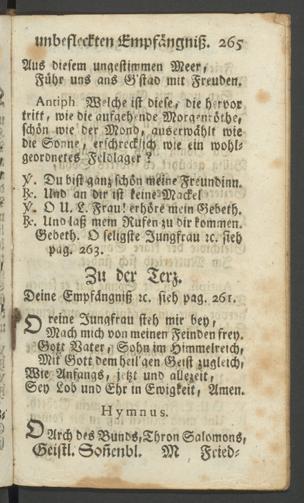 unbefleckten Empfängniß. 265
Aus diesem ungestimmen Meer,
Führ uns ans G'stad mit Freuden.
Antiph Welche ist diese, die hervor
tritt, wie die aufgehende Morgenröthe,
schön wie der Mond, auserwählt wie
die Sonne, erschrecklich wie ein wohl-
geordnetes Feldlager?
℣. Du bist ganz schön meine Freundinn.
℟. Und an dir ist keine Mackel
℣. O U. L. Frau! erhöre mein Gebeth.
℟. Und laß mein Rufen zu dir kommen.
Gebeth. O seligste Jungfrau ꝛc. sieh
pag. 263.
Zu der Terz.
Deine Empfängniß ꝛc. sieh pag. 261.
O reine Jungfrau steh mir bey,
Mach mich von meinen Feinden frey.
Gott Vater, Sohn im Himmelreich,
Mit Gott dem heil'gen Geist zugleich,
Wie Anfangs, jetzt und allezeit,
Sey Lob und Ehr in Ewigkeit, Amen.
Hymnus.
O Arch des Bunds, Thron Salomons,
Geistl. Soñenbl. M Fried-